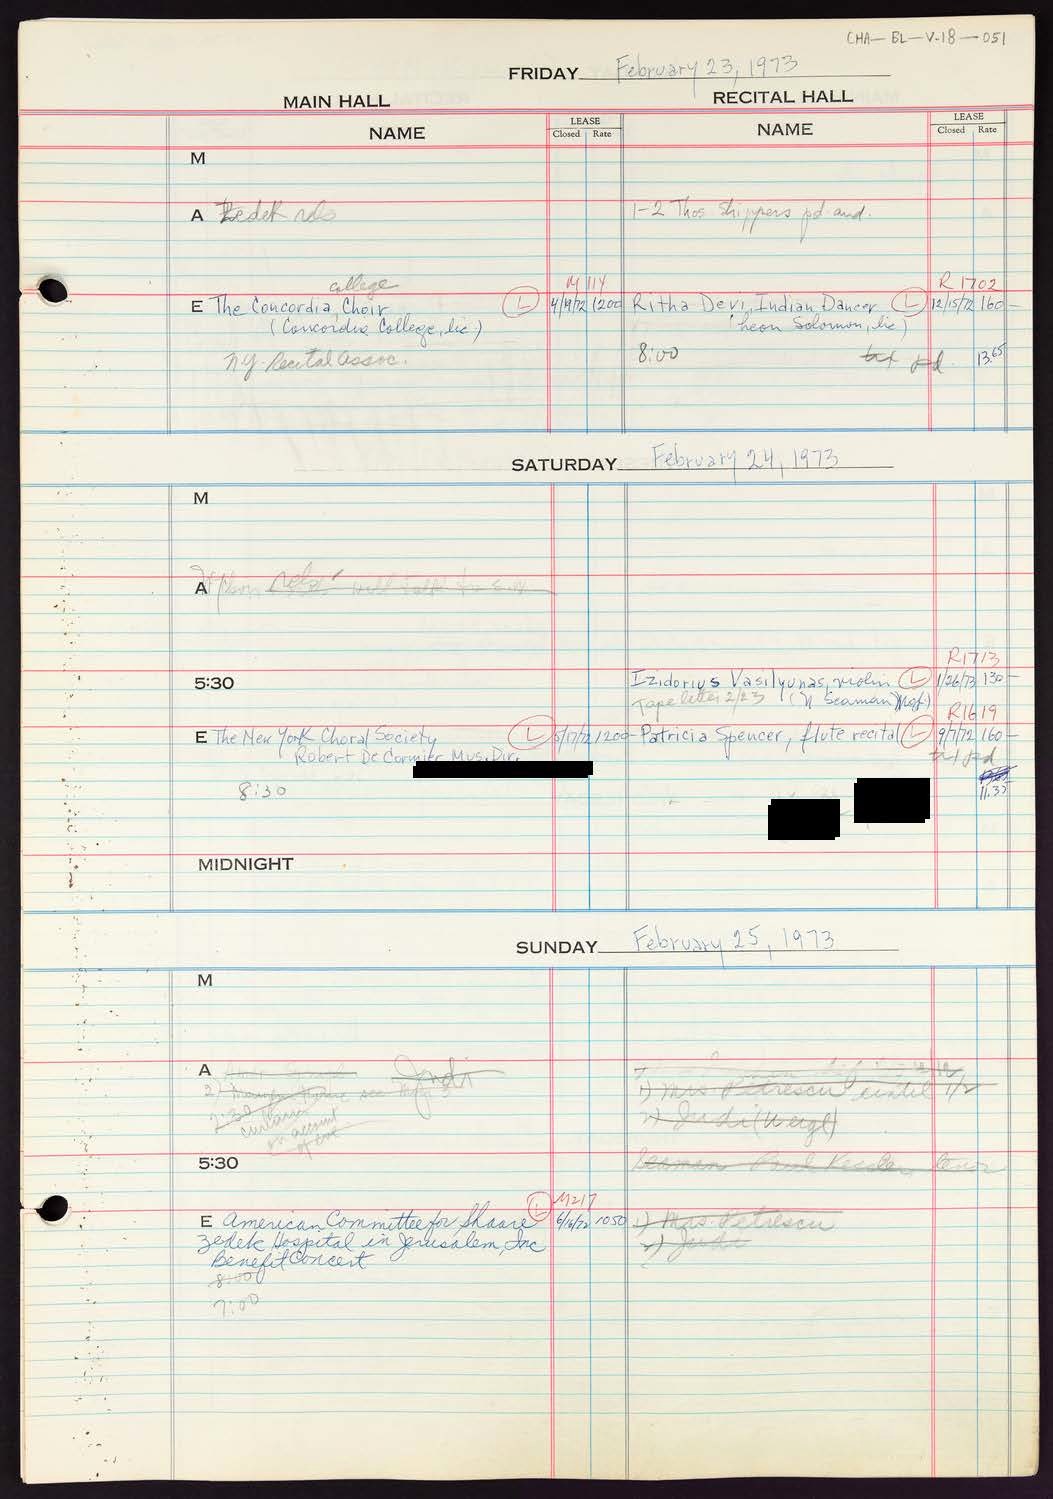 CHA-BL-V-18-051
FRIDAY February 23, 1973
MAIN HALL RECITAL HALL
NAME LEASE Closed Rate NAME LEASE Closed Rate
M
A Zedek 1-2 Thos Shippers pd and.
college M 114 R 1702
E The Concordia Choir L 4/19/72 1200 Ritha Devi, Indian Dancer L 12/15/72 160-
(Concordia College, lic.) (Leon Solomon, lic)
NY Recital Assoc. 8:00 tax pd. 13.65
SATURDAY February 24, 1973
M
A will talk to
R1713
5:30 Izidorius Vasilyunas, violin L 1/26/73 130-
Tape letter 2/23 (N Seaman Mgt.)
R1619
E The New York Choral Society L 5/17/72 1200- Patricia Spencer, flute recital L 9/7/72 160-
Robert De Cormier Mus. Dir. tax pd
8:30 11.35
MIDNIGHT
SUNDAY February 25, 1973
M
A Judi
2) see May 3 1) Mrs Petrescu until 1/2
2:30 2) Judi (Weigl)
curtain
on account
of
5:30 Seaman Paul Kessler tenor
M217
E American Committee for Shaare L 6/16/72 1050 1) Mrs. Petrescu
Zedek Hospital in Jerusalem, Inc 2) Judi
Benefit Concert
8:00
7:00